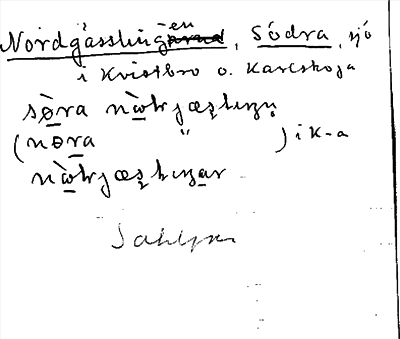 Nordgässlingen, Södra, sjö
i Kvistbro o. Karlskoga
sø̀ra nò̱trjæʂliŋən
(nø̀ra " ) i K-a
nò̱trjæʂliŋar
Sahlgren